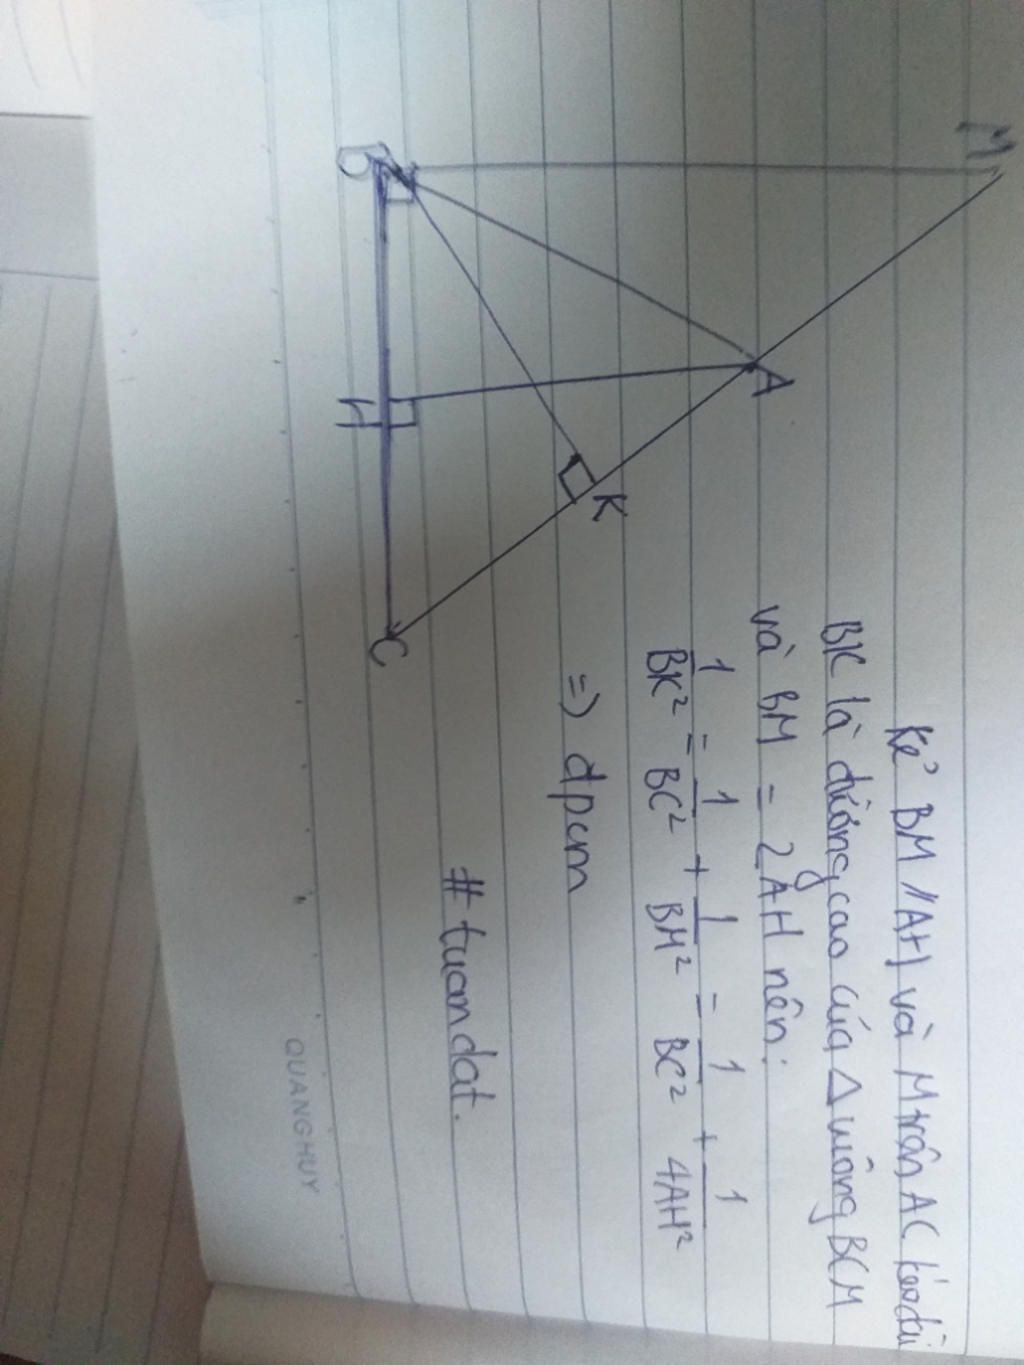 M
A
K
B
H
C
Kẻ BM // AH và M trên AC kéo dài
BK là đường cao của Δ vuông BCM
và BM = 2AH nên:
1/BK² = 1/BC² + 1/BM² = 1/BC² + 1/4AH²
=> đpcm
#tuandat.
QUANGHUY